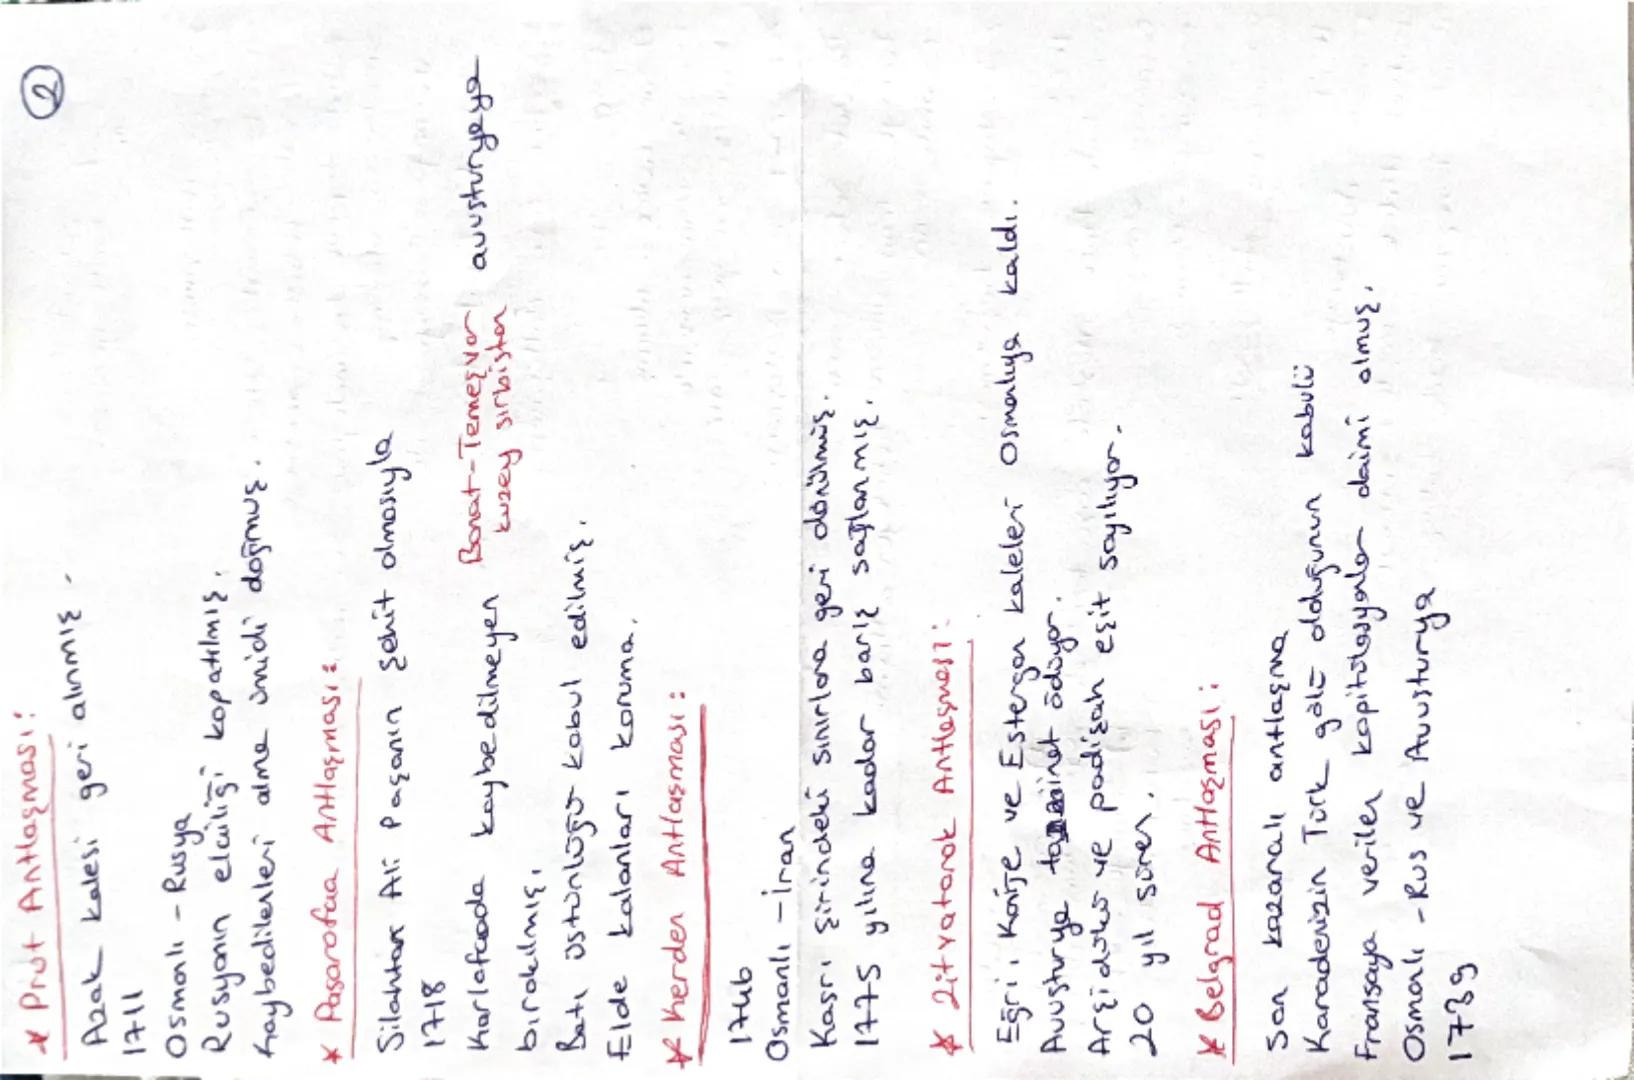 2
* Prut Antlaşması:
Azak kalesi geri alınmış.
1711
Osmanlı - Rusya
Rusyanın elçiliği kapatılmış.
Kaybedilenleri alma ümidi doğmuş.
* Pasarofça Antlaşması:
Silahtar Ali Paşanın şehit olmasıyla
1718
Karlofçada kaybedilmeyen Banat-Temeşvar avusturyaya
kuzey sırbistan
bırakılmış.
Batı üstünlüğü kabul edilmiş.
Elde kalanları koruma.
* Kerden Antlaşması:
1746
Osmanlı - İran
Kasrı şirindeki sınırlara geri dönülmüş.
1775 yılına kadar barış sağlanmış.
* Zitvatorok Antlaşması:
Eğri, Kanije ve Estergon kaleleri Osmanlıya kaldı.
Avusturya ödüyor.
Arşidükü ve padişah eşit sayılıyor.
20 yıl süren.
* Belgrad Antlaşması:
Son kazanalı antlaşma
Karadenizin Türk gölü olduğunun kabulü
Fransaya verilen kapitülasyonlar daimi olmuş.
Osmanlı - Rus ve Avusturya
1739